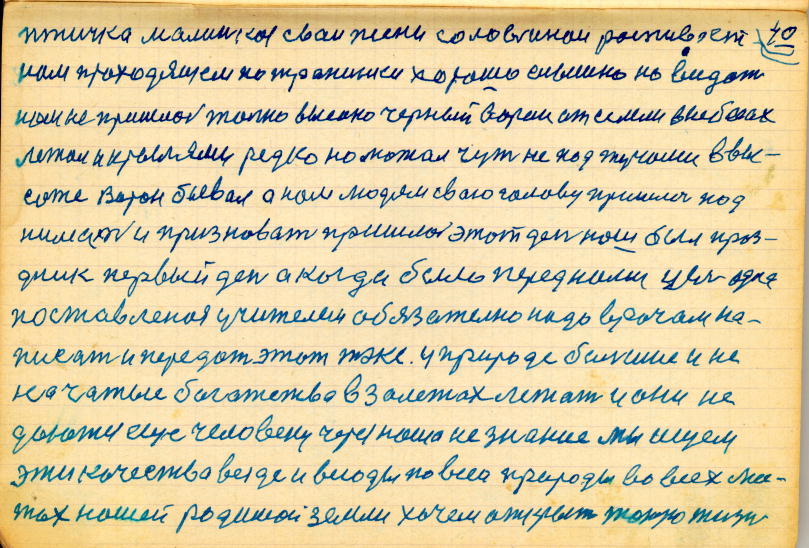 40
птичка маленкоя сваи песни соловьиной роспивает
ном проходящем по тропинки хорошо слышно но видат
ном не пришлос толко высоко черный ворон от земли в небесах
летал и крылями редко но можал чут не под тучами в вы-
соте ворон бывал а ном людям сваю голову пришлос под
нимат и признават пришлос этот ден нош был проз-
дник первый ден а когда было передноми цел одна
постовленоя учителем обязателно надо врочам на-
писат и передат этот текс. у природе болшие и не
на чатые богатства в залежах лежат и они не
даютси еще человеку через ноша не знание мы ищем
эти кочества везде и всюды по всеа природы во всех мес-
тах ношей родимой земли хочем открыт